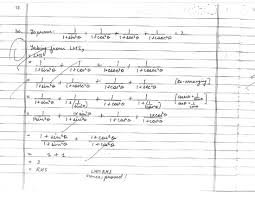 To prove: 1/(1+sin²θ) + 1/(1+cos²θ) + 1/(1+sec²θ) + 1/(1+cosec²θ) = 2
Taking from LHS,
= 1/(1+sin²θ) + 1/(1+cos²θ) + 1/(1+sec²θ) + 1/(1+cosec²θ)
= 1/(1+sin²θ) + 1/(1+cosec²θ) + 1/(1+cos²θ) + 1/(1+sec²θ) [Re-arranging]
= 1/(1+sin²θ) + 1/(1+(1/sin²θ)) + 1/(1+cos²θ) + 1/(1+(1/cos²θ))
= 1/(1+sin²θ) + sin²θ/(1+sin²θ) + 1/(1+cos²θ) + cos²θ/(1+cos²θ)
= (1+sin²θ)/(1+sin²θ) + (1+cos²θ)/(1+cos²θ)
= 1 + 1
= 2
= RHS LHS=RHS
Hence, proved!